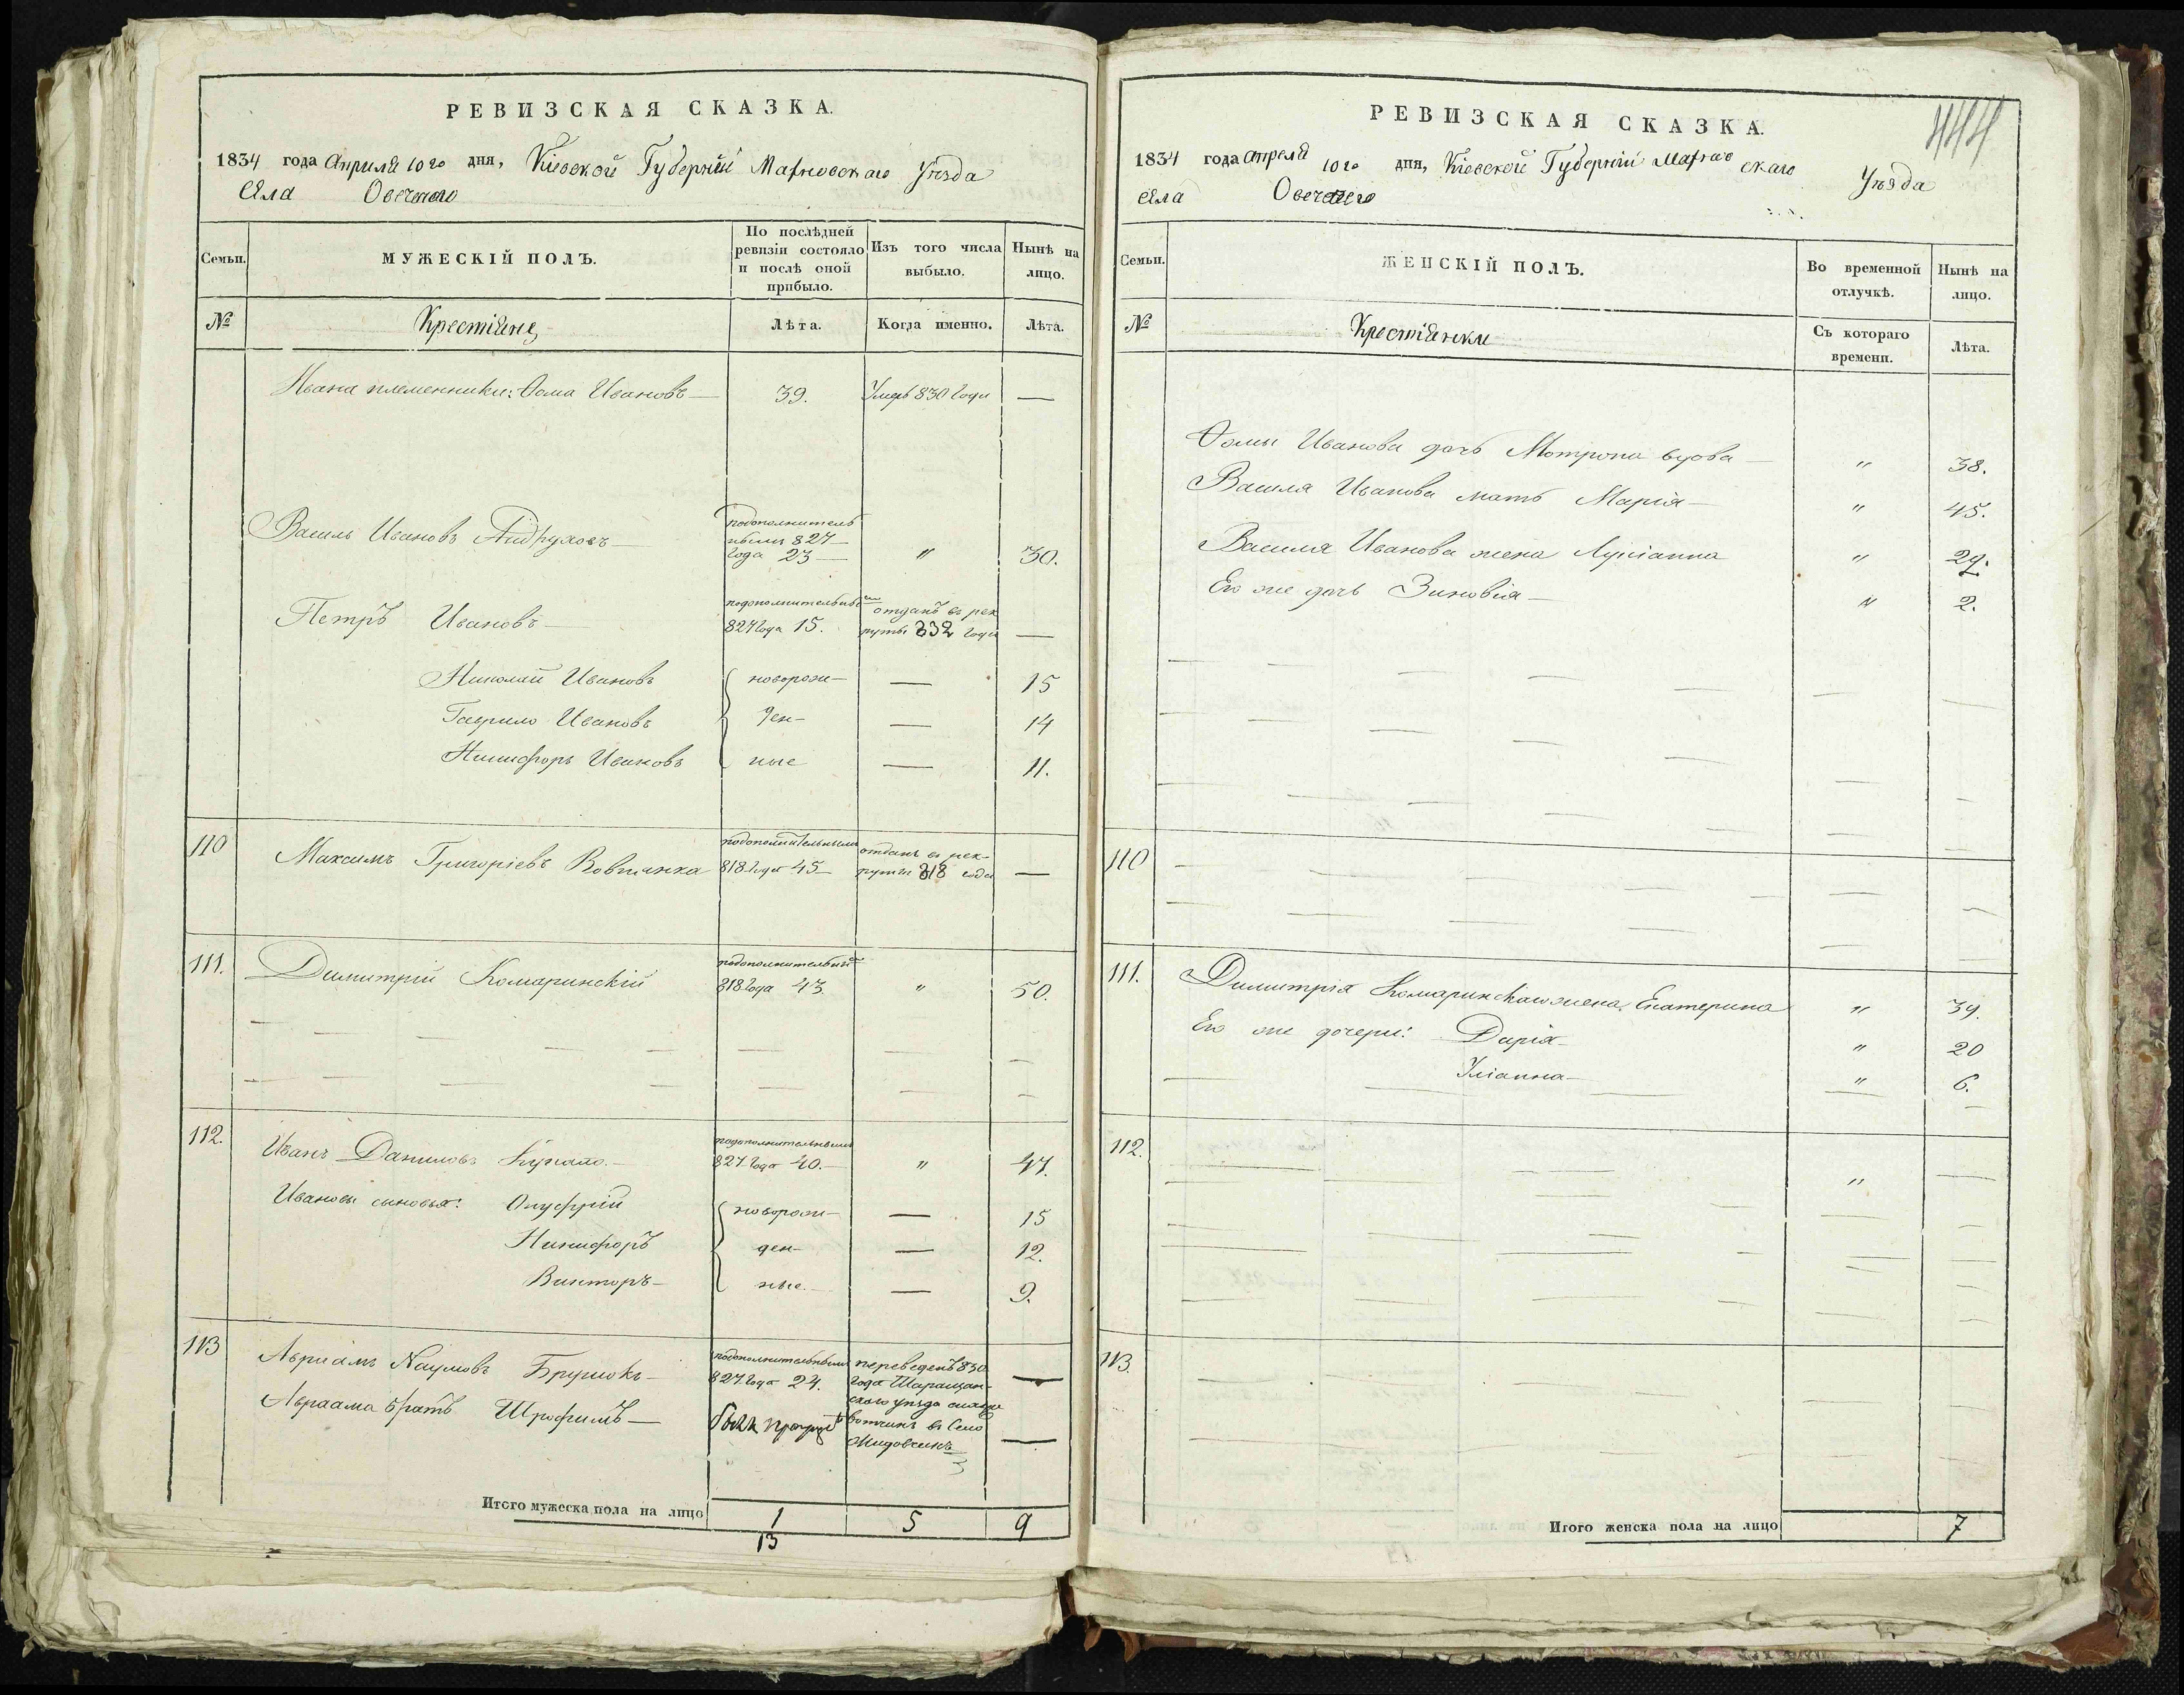 РЕВИЗСКАЯ СКАЗКА.
1834 года Апреля 10го дня, Кіевской Губерніи Махновскаго Уѣзда
Села Овечого
Семьи.
МУЖЕСКІЙ ПОЛЪ.
По послѣдней ревизіи состояло и послѣ оной прибыло.
Изъ того числа выбыло.
Нынѣ на лицо.
№
Крестіяне
Лѣта.
Когда именно.
Лѣта.
Ивана племенники: Ѳома Ивановъ 39. Умеръ 830 года —
Василь Ивановъ
подополнительнымъ 827 года 23 " 30.
Петръ Ивановъ
подополнительнымъ 827 года 15. отданъ в рекруты 832 года —
Николай Ивановъ новорож- — 15
Гаврило Ивановъ ден- — 14
Никифоръ Ивановъ ные — 11.
110 Максимъ Григоріевъ Вовчанка
подополнительнымъ 818 года 45 отданъ в рекруты 818 года —
111. Димитрій Комаринскій
подополнительнымъ 818 года 43 " 50.
112. Иванъ Даниловъ
подополнительнымъ 827 года 40. " 47.
Ивановы сыновья: Онуфрій новорож- — 15
Никифоръ ден- — 12.
Викторъ ные. — 9.
113 Авраамъ Наумовъ
подополнительнымъ 827 года 24. переведенъ 830 года уѣзда в село —
Авраама братъ —
Итого мужеска пола на лицо 1 5 9
13
444
РЕВИЗСКАЯ СКАЗКА.
1834 года Апреля 10го дня, Кіевской Губерніи Махновскаго Уѣзда
Села Овечего
Семьи.
ЖЕНСКІЙ ПОЛЪ.
Во временной отлучкѣ.
Нынѣ на лицо.
№
Крестіянки
Съ котораго времени.
Лѣта.
Ѳомы Иванова дочь Мотрона вдова " 38.
Василя Иванова мать Марія " 45.
Василя Иванова жена " 29.
Его же дочь Зиновія " 2.
110
111. Димитрія Комаринскаго жена Екатерина " 39.
Его же дочери: Дарія " 20
Уліанна " 6.
112. "
113.
Итого женска пола на лицо 7